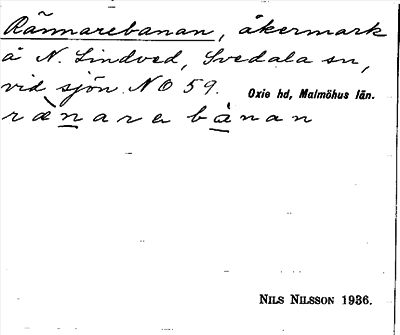 Rännarebanan, åkermark
å N. Lindved, Svedala sn,
vid sjön. NO 59. Oxie hd, Malmöhus län.
rænarebånan
NILS NILSSON 1936.